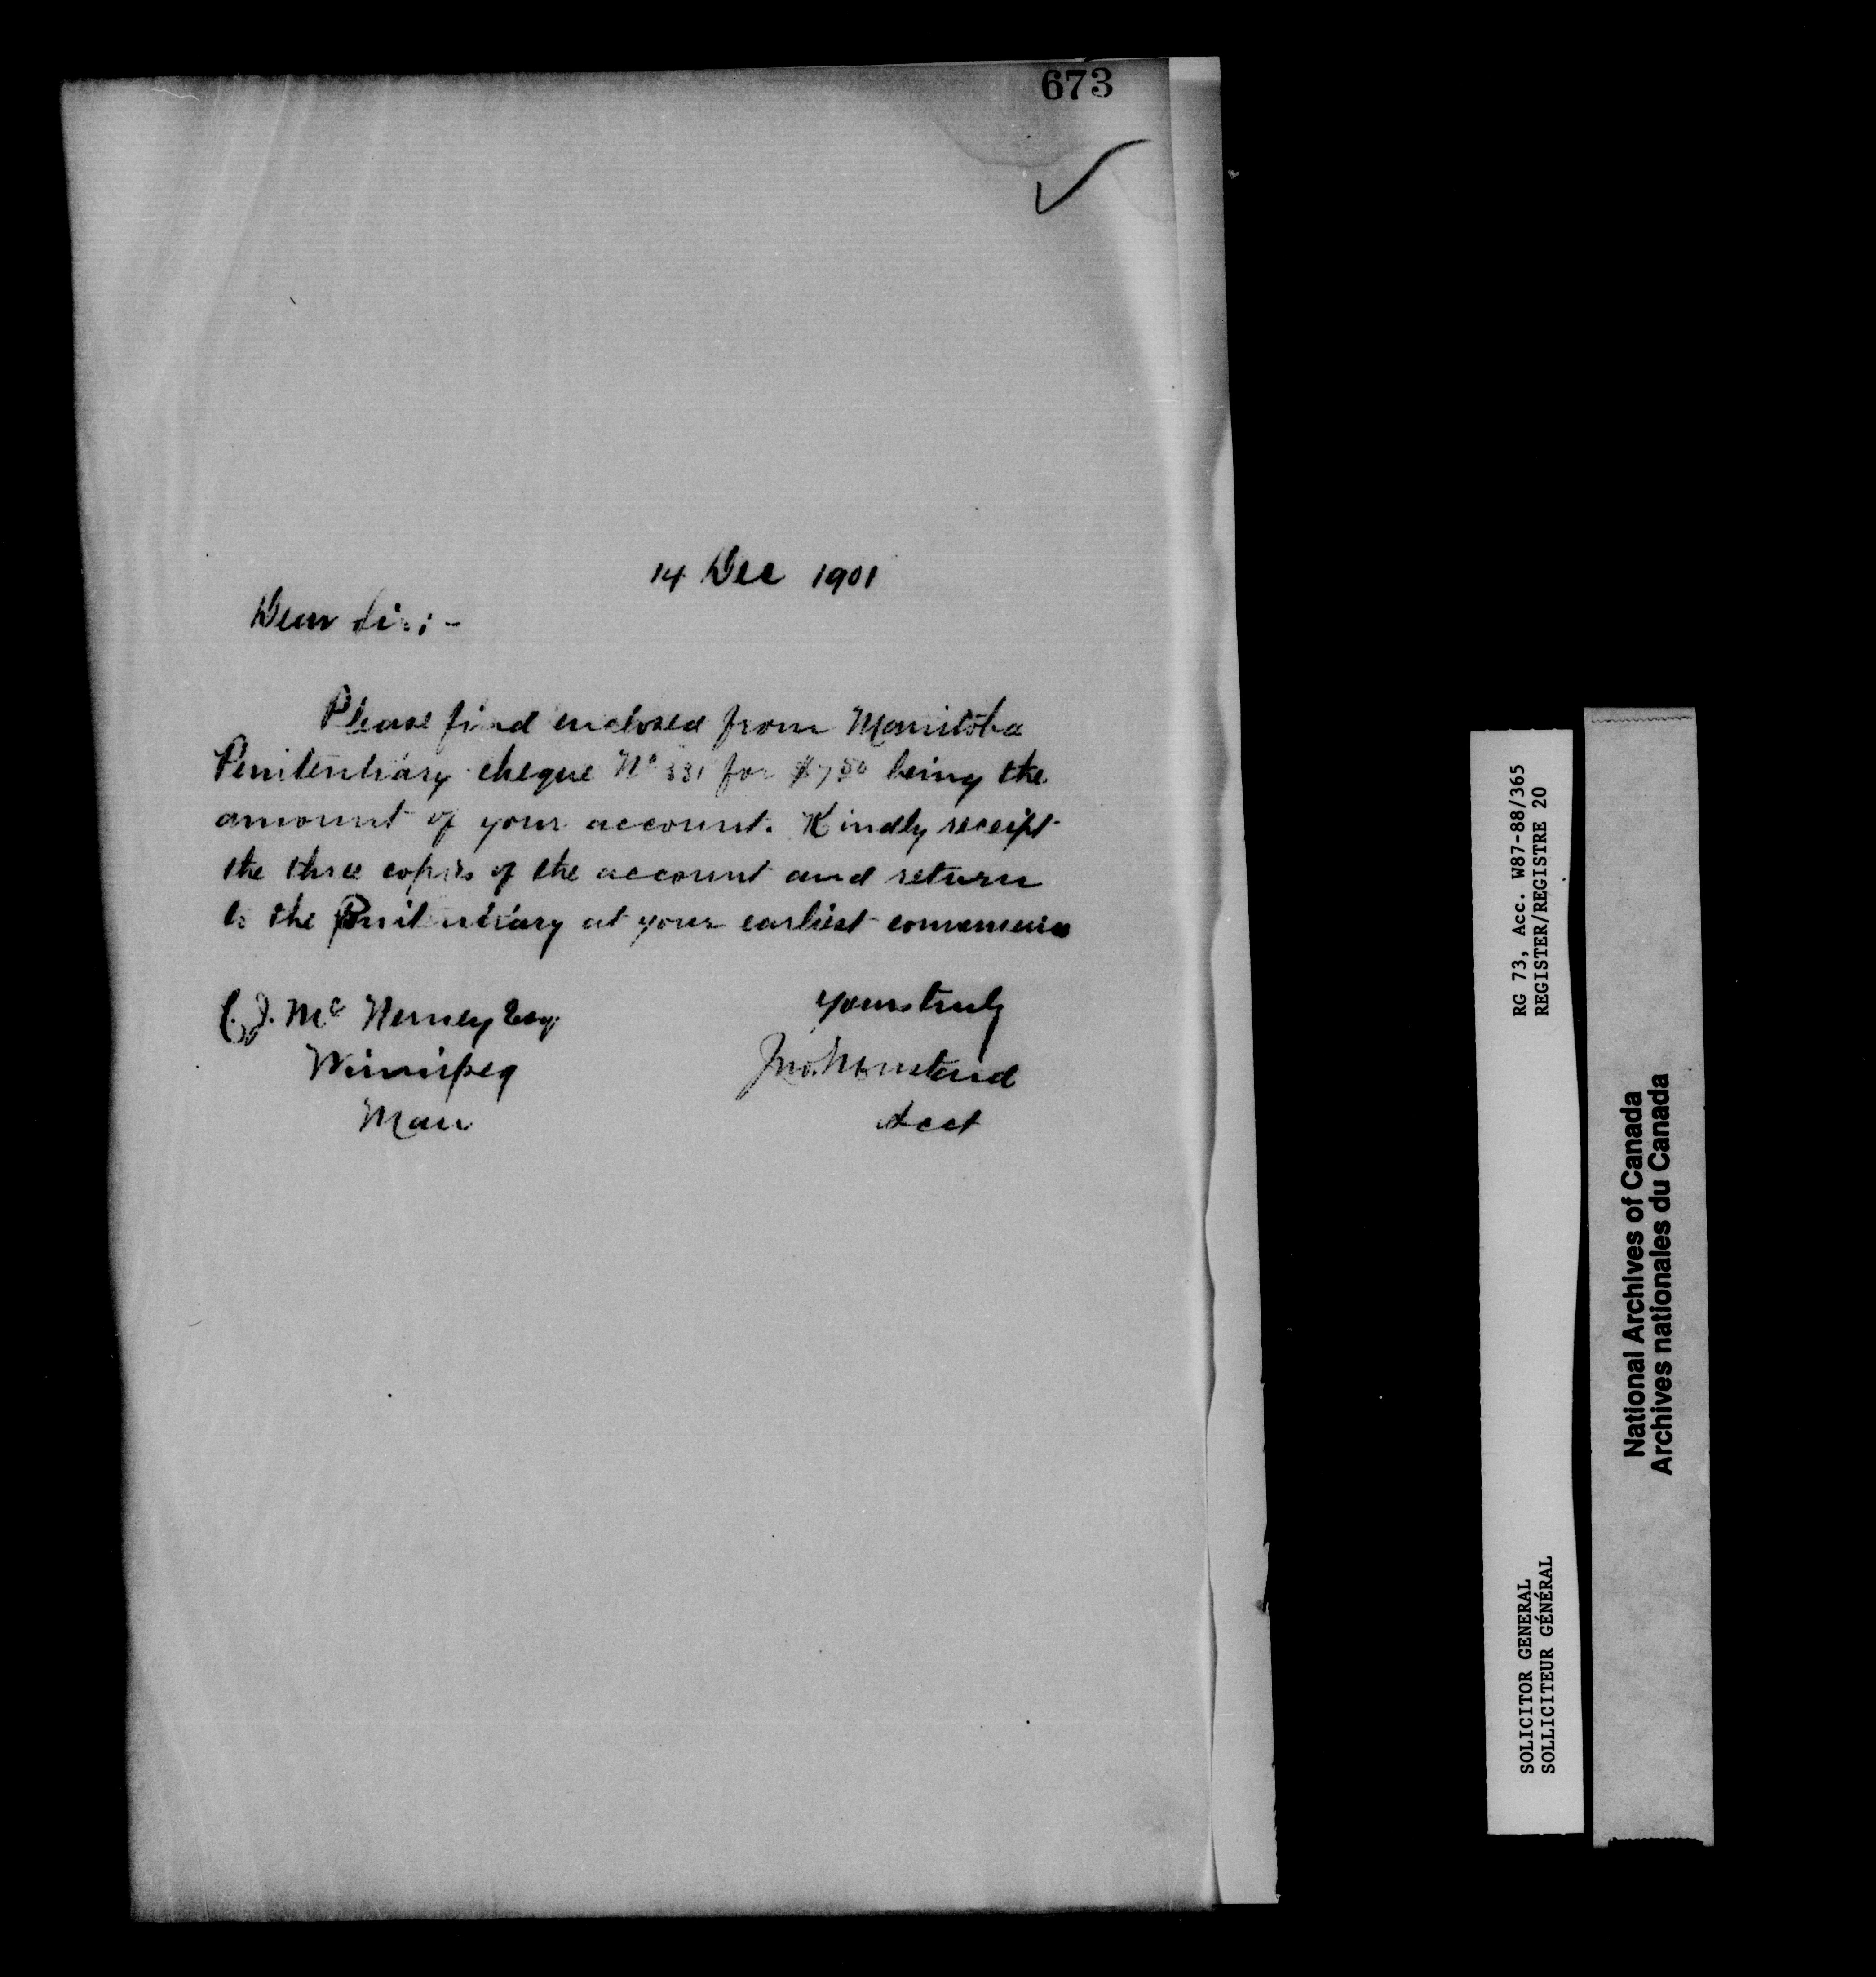 673
14 Dec 1901
Dear Sir:-
Please find enclosed from Manitoba
Penitentiary cheque No 331 for $7 50 being the
amount of your account. Kindly receipt
the three copies of the account and return
to the Penitentiary at your earliest convenience
C. J. Mc Nerney Esq
Winnipeg
Man
Yours truly
Jno. Mustard
Acct
RG 73, Acc. W87-88/365
REGISTER/REGISTRE 20
SOLICITOR GENERAL
SOLLICITEUR GÉNÉRAL
National Archives of Canada
Archives nationales du Canada